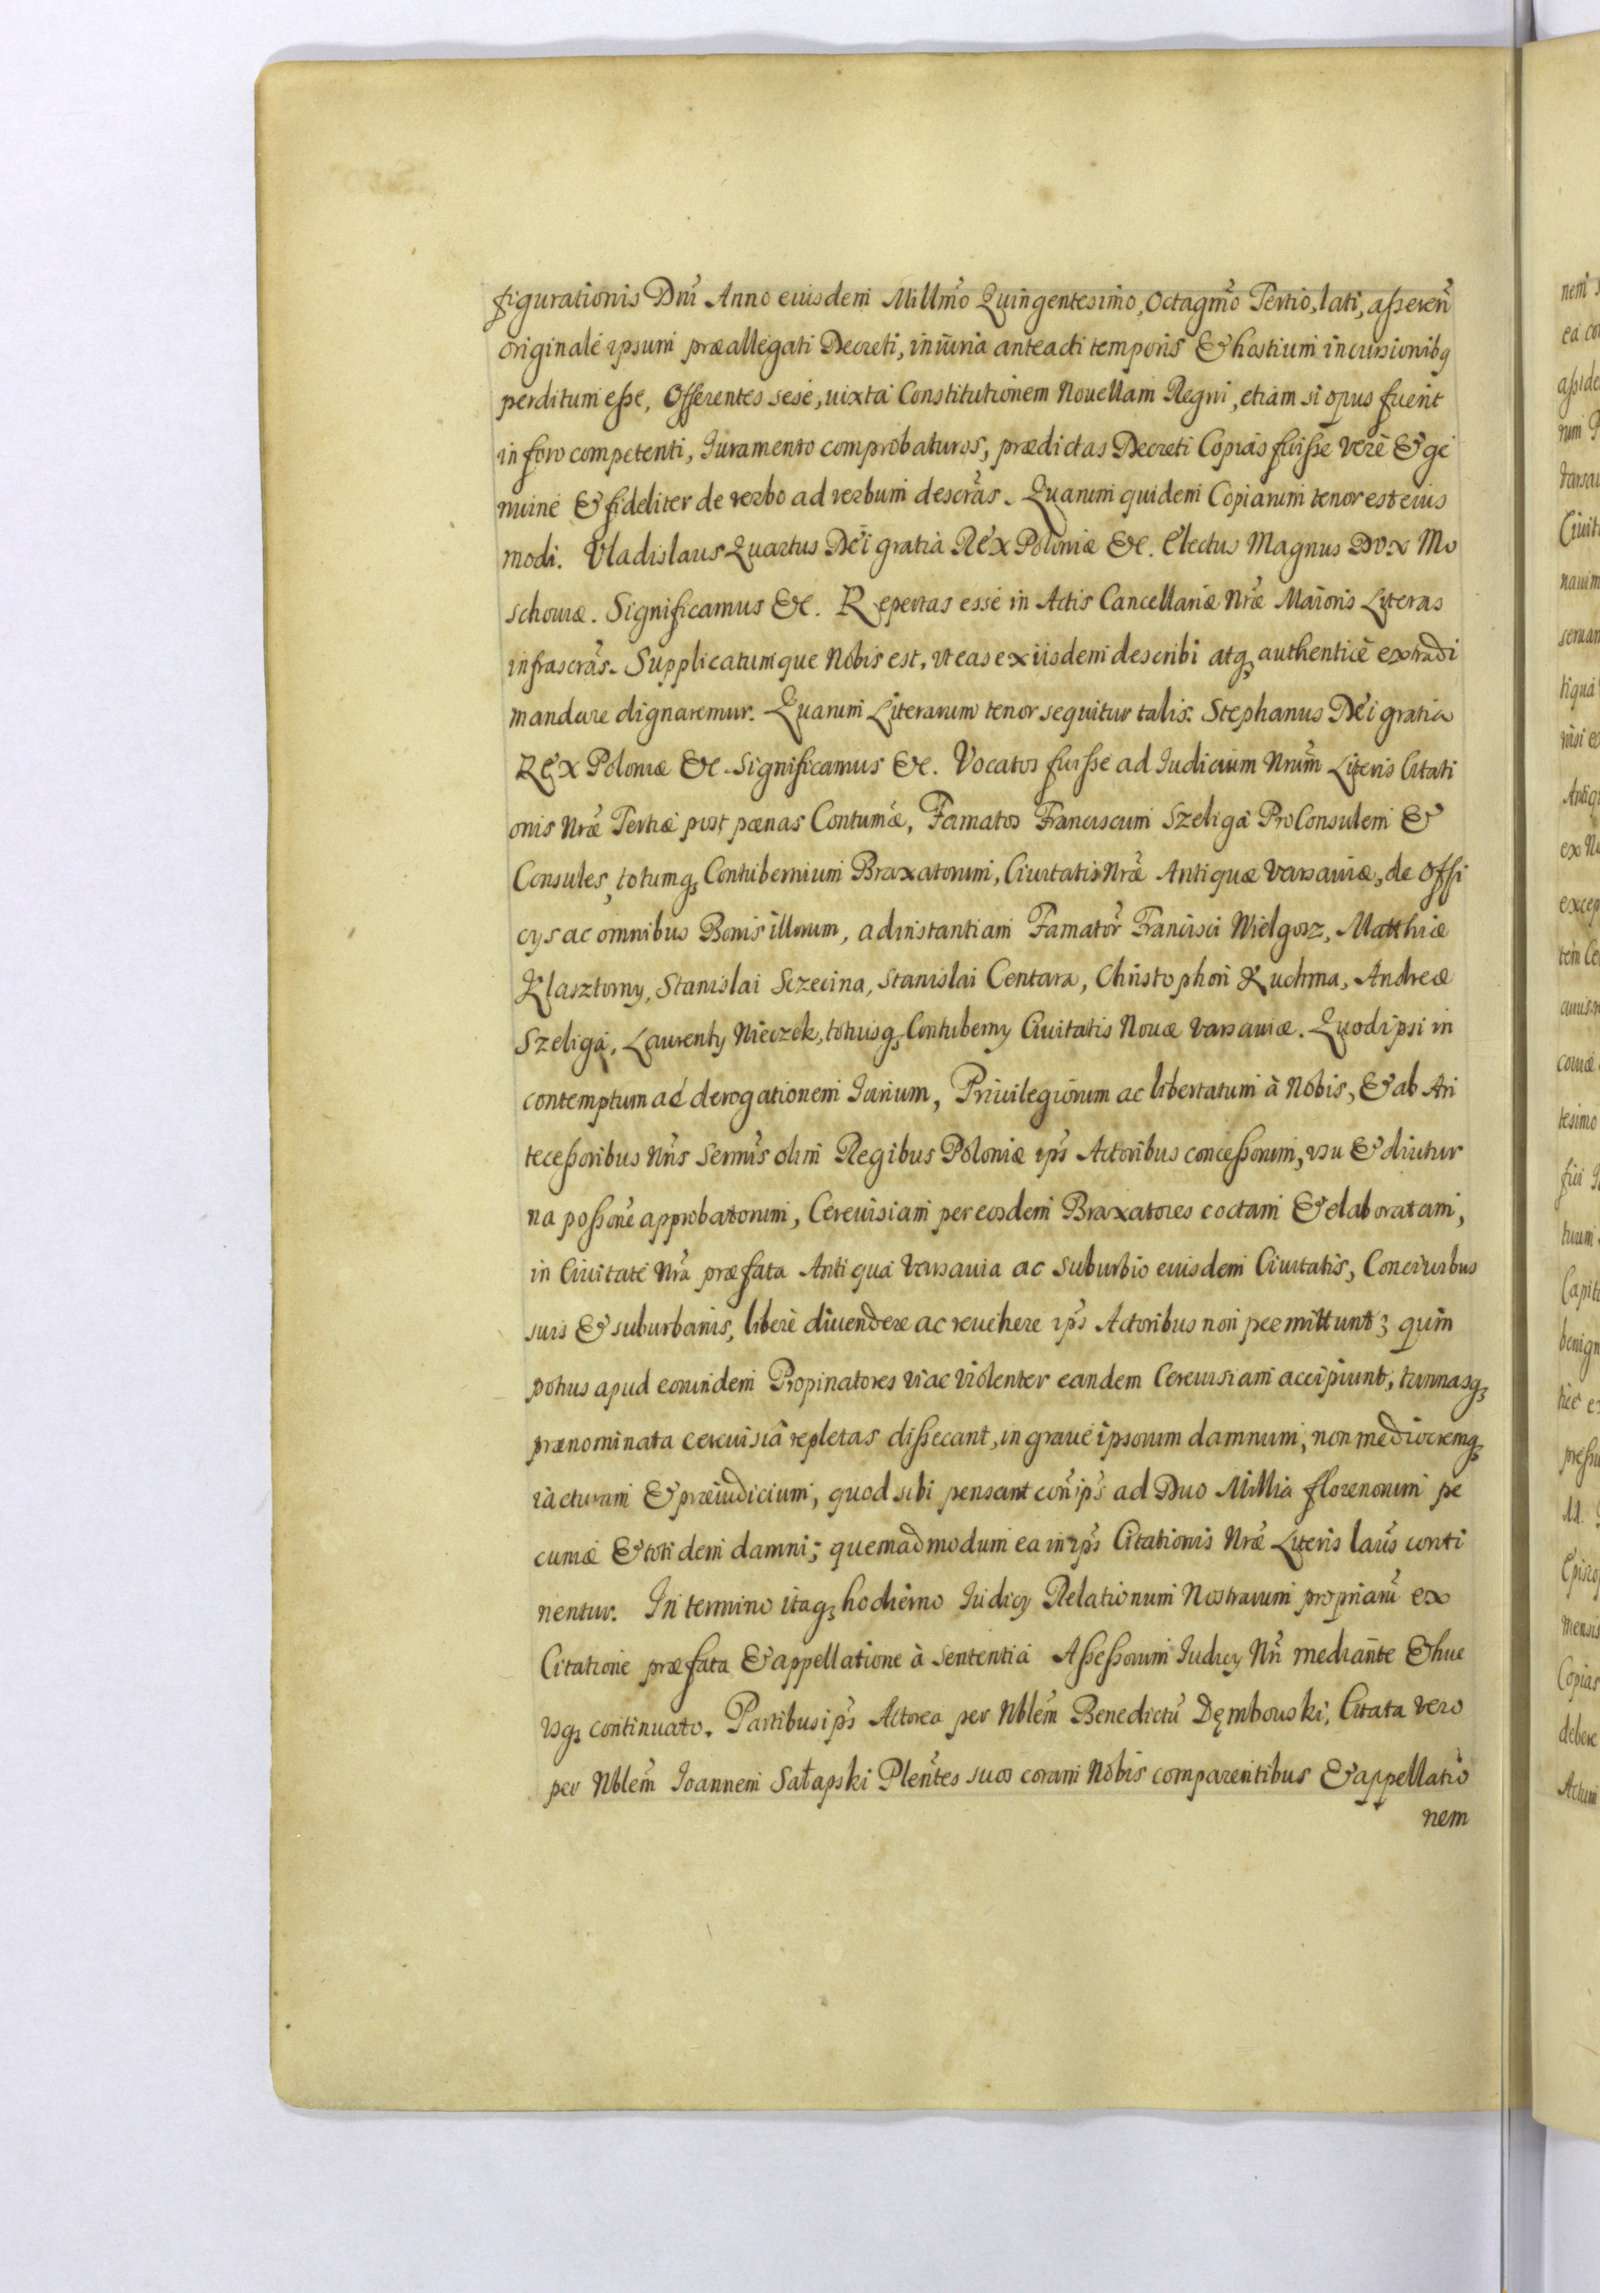 figurationis Dnĩ Anno eiusdem Millm̃o Quingentesimo, Octagm̃o Tertio, lati, asseren̄
originale ipsum præallegati Decreti, iniuria anteacti temporis & hostium incursionibq
perditum esse, Offerentes sese, iuxta Constitutionem Nouellam Regni, etiam si opus fuerit
in foro competenti, Iuramento comprobaturos, prædictas Decreti Copias fuisse verè & ge
nuine & fideliter de verbo ad verbum descrãs. Quarum quidem Copiarum tenor est eius
modi. Vladislaus Quartus Dei gratia Rex Poloniæ &c. Electus Magnus Dux Mo
schouiæ. Significamus &c. Repertas esse in Actis Cancellariæ Nrãe Maioris Literas
infrascrãs. Supplicatumque Nobis est, vt eas ex iisdem describi atq; authenticè extradi
mandare dignaremur. Quarum Literarum tenor sequitur talis. Stephanus Dei gratia
Rex Poloniæ &c. Significamus &c. Vocatos fuisse ad Iudicium Nrum̃ Literis Citati
onis Nrãe Tertiæ post pœnas Contumãe, Famatos Franciscum Szeliga ProConsulem &
Consules, totumq; Contubernium Braxatorum, Ciuitatis Nrãe Antiquæ Varsauiæ, de Offi
cys ac omnibus Bonis illorum, ad instantiam Famator̃ Francisci Wielgorz, Matthiæ
Klasztorny, Stanislai Sczecina, Stanislai Centara, Christophori Kuchma, Andreæ
Szeliga, Laurenty Nieczek, totiusq; Contuberny Ciuitatis Nouæ Varsauiæ. Quod ipsi in
contemptum ac derogationem Iurium, Priuilegiorum ac libertatum à Nobis, & ab An
tecessoribus Nr̃is Serm̃is olim Regibus Poloniæ ips̃ Actoribus concessorum, vsu & diutur
na posson̄e approbatorum, Cereuisiam per eosdem Braxatores coctam & elaboratam,
in Ciuitate Nrã præfata Antiqua Varsauia ac suburbio eiusdem Ciuitatis, Conciuibus
suis & suburbanis, liberè diuendere ac reuehere ips̃ Actoribus non permittunt; quim
potius apud eorundem Propinatores vi ac violenter eandem Cereuisiam accipiunt, tunnasq;
prænominata cereuisiâ repletas dissecant, in graue ipsorum damnum, non mediocremq;
iacturam & præiudicium, quod sibi pensant con̄ ips̃ ad Duo Millia florenorum pe
cuniæ & totidem damni; quemadmodum ea in ips̃ Citationis Nrãe Literis laius̃ conti
nentur. In termino itaq; hodierno Iudicy Relationum Nostrarum propriarũ ex
Citatione præfata & appellatione à sententia Assessorum Iudicy Nr̃i mediante & huc
vsq; continuato. Partibus ips̃ Actorea per Nblem̃ Benedictũ Dęmbouski, Citata vero
per Nblem̃ Ioannem Sałapski Plen̄tes suos coram Nobis comparentibus & appellatio
nem